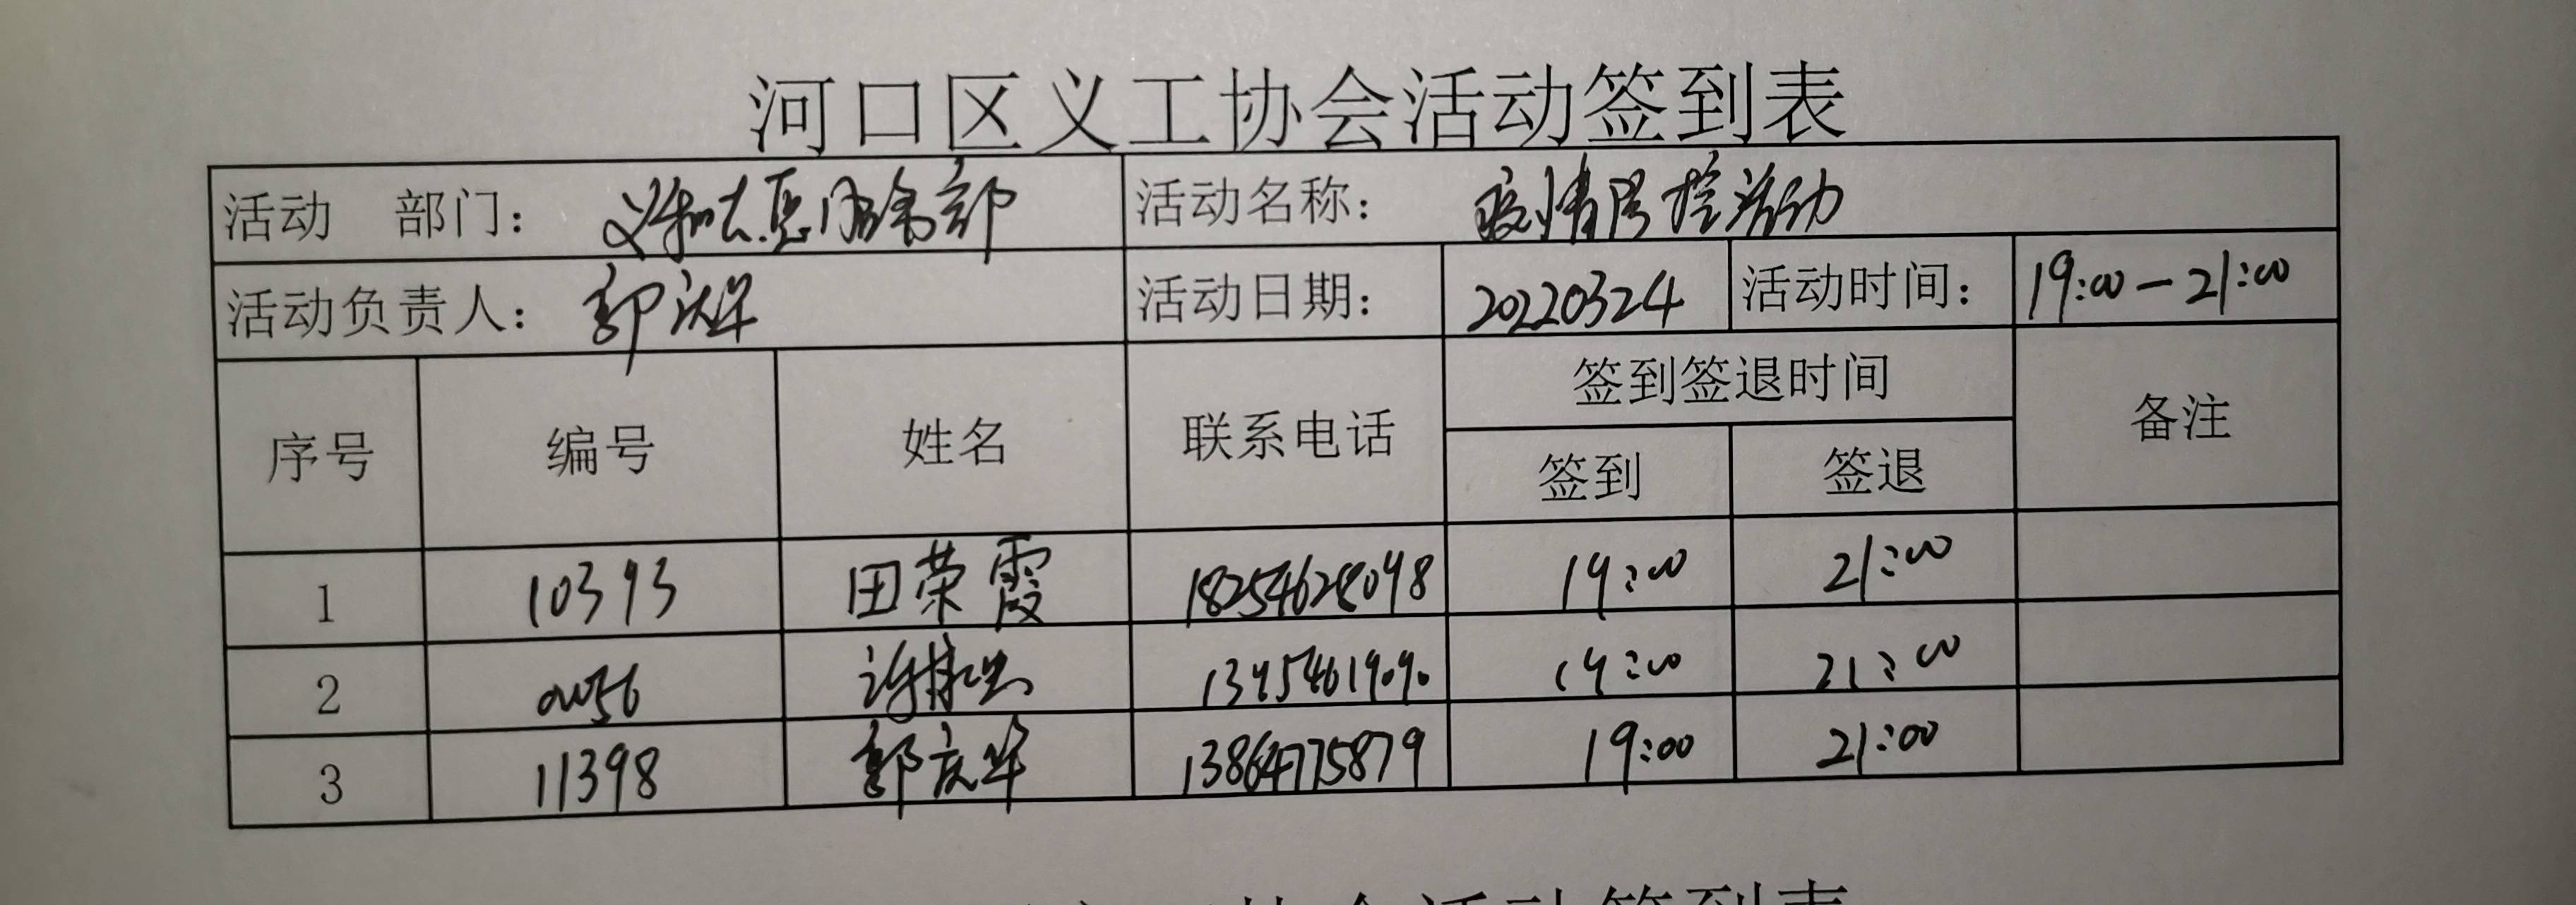 河口区义工协会活动签到表
活动 部门： 义和志愿服务部 活动名称： 疫情防控活动
活动负责人： 郭庆华 活动日期： 20220324 活动时间： 19:00-21:00
序号 编号 姓名 联系电话 签到签退时间 备注
签到 签退
1 10393 田荣霞 18254628098 19:00 21:00
2 许 19:00 21:00
3 11398 郭庆华 13864775879 19:00 21:00
协会活动签到表